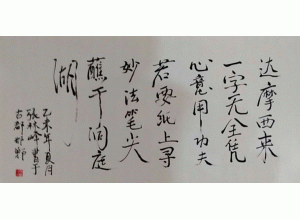 达摩西来
一字无全凭
心意用功夫
若要纸上寻
妙法笔尖
蘸干洞庭
湖
乙未年夏月
张林峰书于
古都邯郸